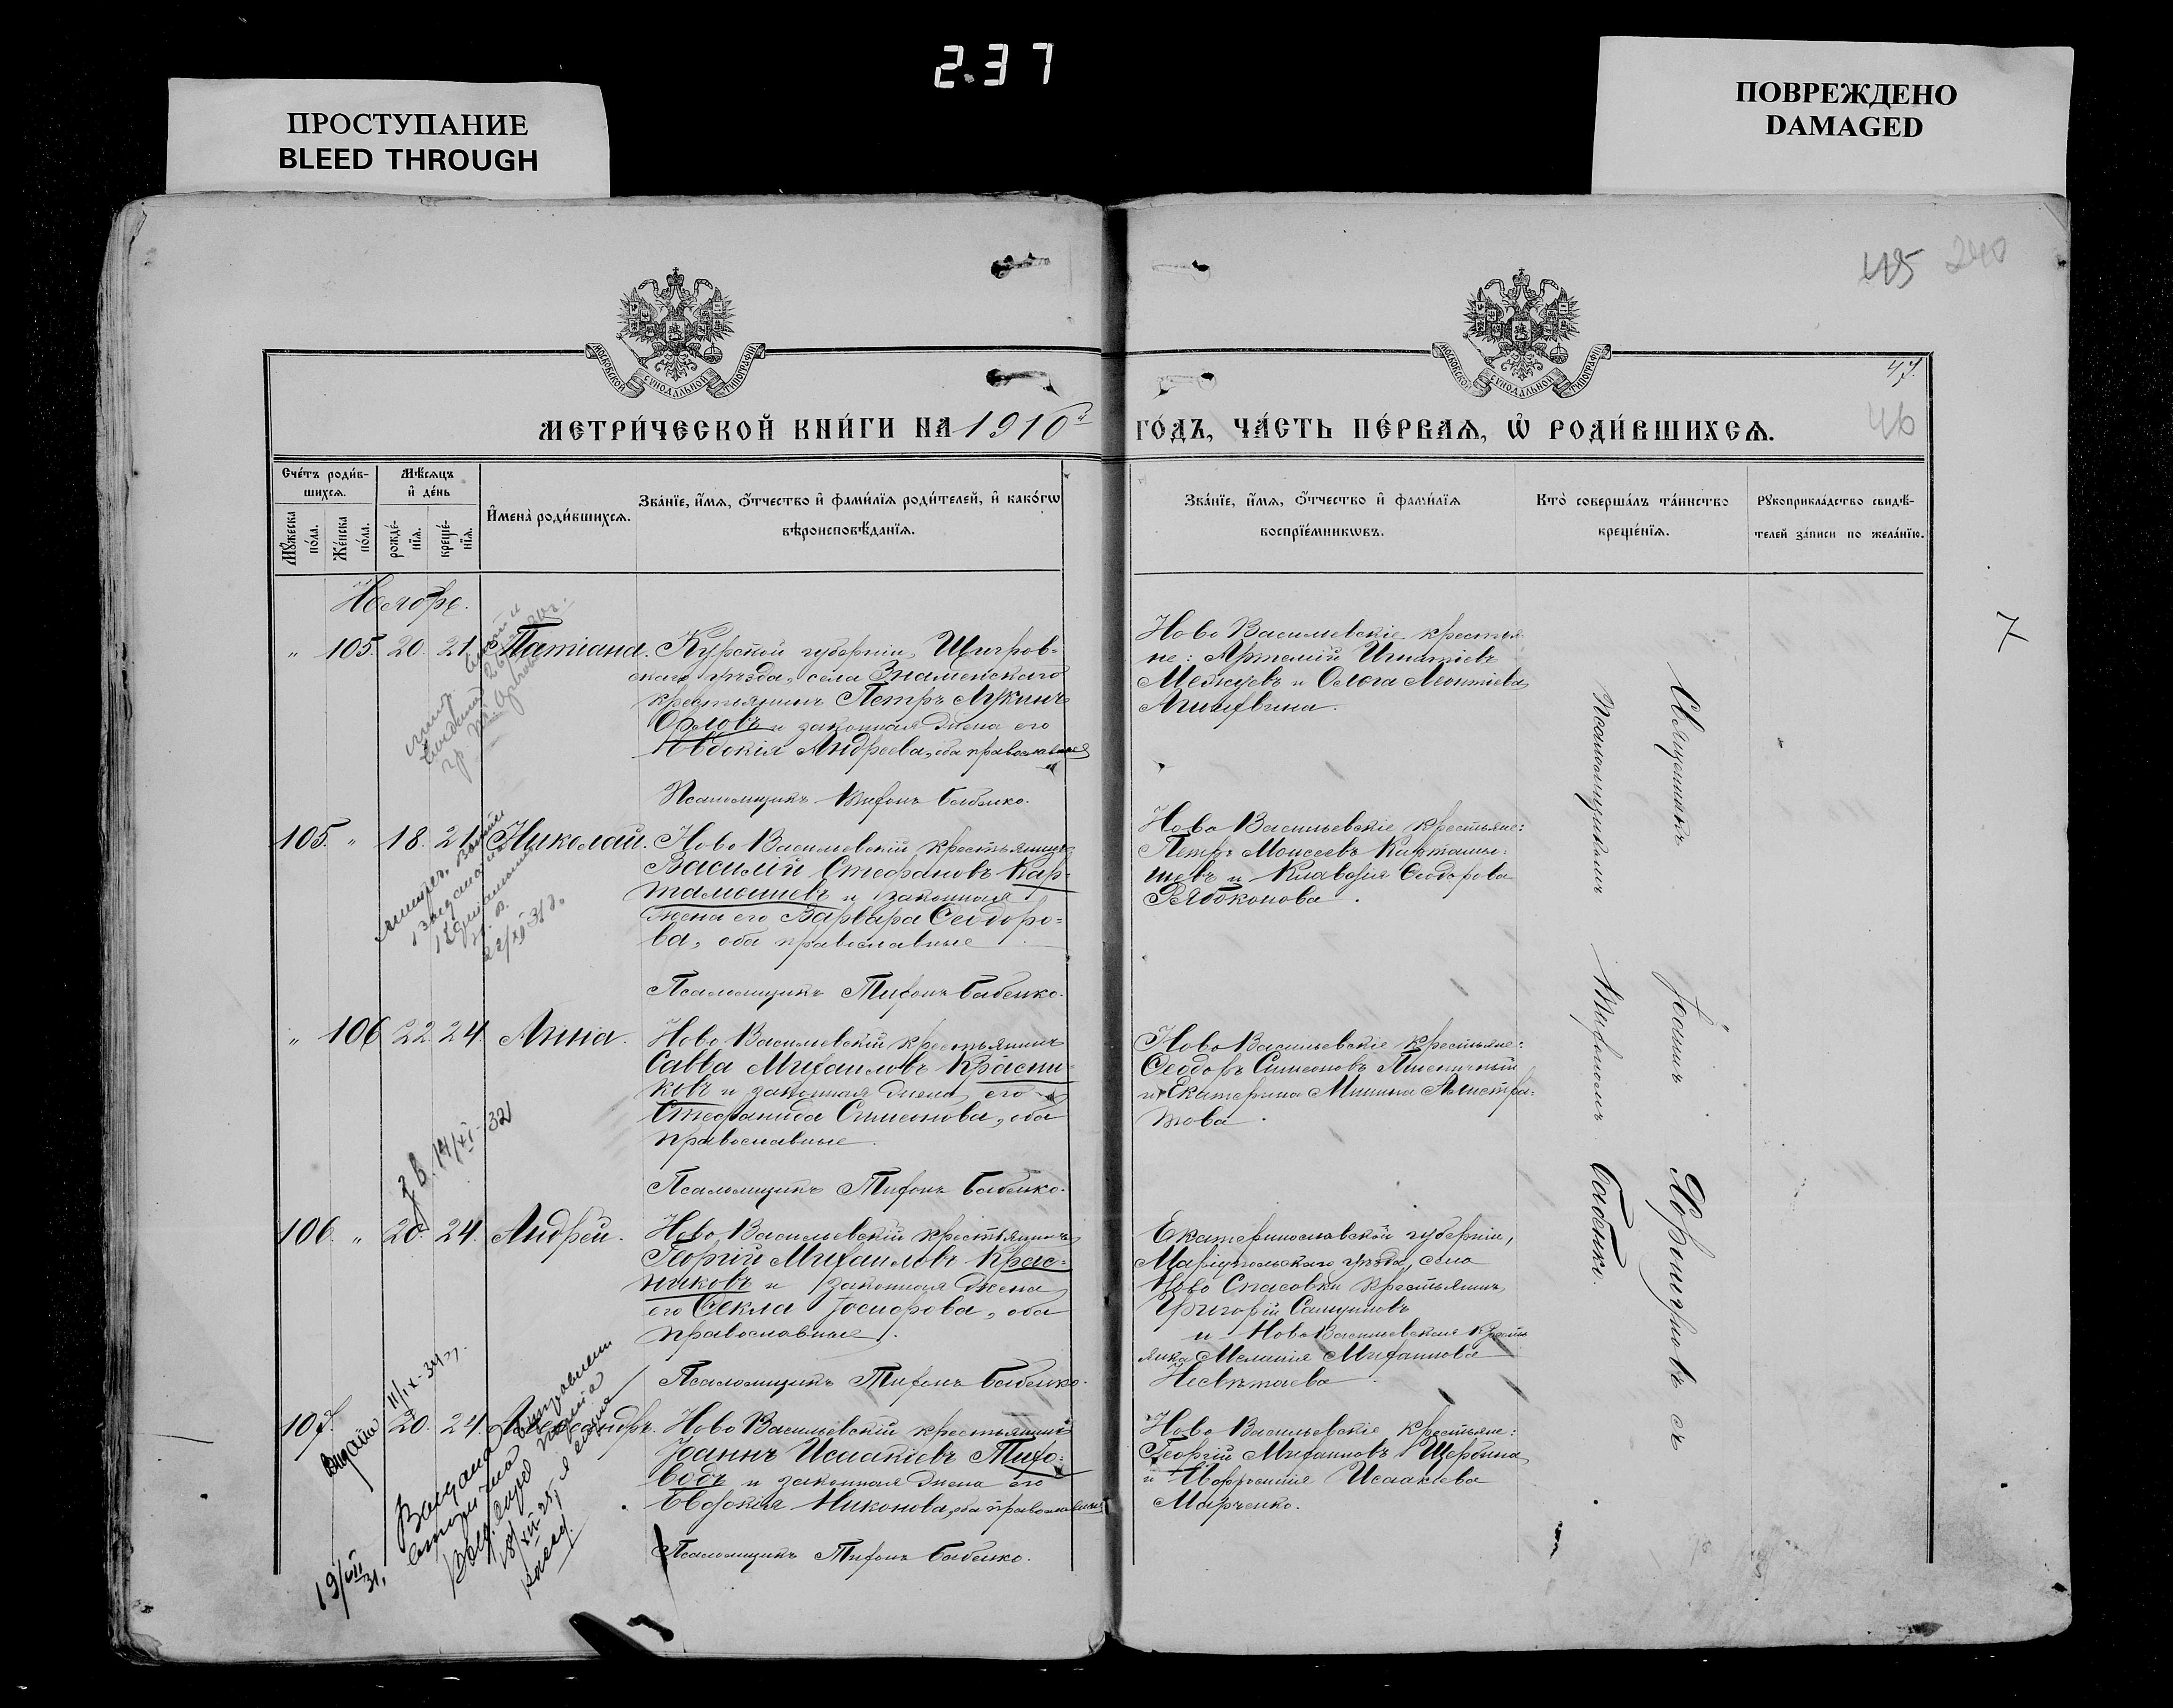 2.37
ПРОСТУПАНИЕ
BLEED THROUGH
ПОВРЕЖДЕНО
DAMAGED
45 240
МОСКОВСКОЙ СУНОДАЛЬНОЙ ТИПОГРАФІИ
МОСКОВСКОЙ СУНОДАЛЬНОЙ ТИПОГРАФІИ
47.
46
7
МЕТРИ́ЧЕСКОЙ КНИ́ГИ НА 1910й ГО́ДЪ, ЧА́СТЬ ПЕ́РВАѦ, Ѡ҆ РОДИ́ВШИХСѦ.
Сче́тъ роди́в-
шихсѧ.
Мѣ́сѧцъ
и҆ де́нь
Мꙋ́жеска
по́ла.
Же́нска
по́ла.
рожде́-
нїѧ.
креще́-
нїѧ.
И҆мена̀ роди́вшихсѧ.
Зва́нїе, и҆́мѧ, ѻ҆́тчество и҆ фами́лїѧ роди́телей, и҆ како́гѡ
вѣроисповѣ́данїѧ.
Зва́нїе, и҆́мѧ, ѻ҆́тчество и҆ фами́лїѧ
воспрїе́мникѡвъ.
Кто̀ соверша́лъ та́инство
креще́нїѧ.
Рꙋкоприкла́дство свидѣ́-
телей за́писи по жела́нїю.
Ноябрь.
" 105. 20. 21. Татіана.
Курской губерніи, Щигров-
скаго уѣзда, села Знаменскаго
крестьянинъ Петръ Лукинъ
Орловъ и законная жена его
Евдокія Андреева, оба православные
Псаломщикъ Тифонъ Бабенко.
Ново Васильевскіе крестья-
не: Артемій Игнатіевъ
и Олга Леонтіева
105. " 18. 21. Николай.
Ново Васильевскій крестьянинъ
Василій Стефановъ Кар-
тамышевъ и законная
жена его Варвара Ѳеодоро-
ва, оба православные
Псаломщикъ Тифонъ Бабенко.
Ново Васильевскіе крестьяне:
Петръ Моисеевъ Картамы-
шевъ и Клавдія Ѳеодорова
Рябоконова.
" 106 22. 24. Анна.
Ново Васильевскій крестьянинъ
Савва Михаиловъ Красни-
ковъ и законная жена его
Стефанида Симеонова, оба
православные.
Псаломщикъ Тифонъ Бабенко.
Ново Васильевскіе крестьяне:
Ѳеодоръ Симеоновъ Пшеничный
и Екатерина Минина Алистра-
това.
14/XI-32
106. " 20. 24. Андрей.
Ново Васильевскій крестьянинъ
Георгій Михаиловъ Крас-
никовъ и законная жена
его Ѳекла Іосифова, оба
православные.
Псаломщикъ Тифонъ Бабенко.
Екатеринославской губерніи,
Маріупольскаго уѣзда, села
Ново Спасовки крестьянинъ
Григорій
и Ново Васильевская кресть-
янка Меланія Михаилова
Несвѣтаева.
107. 20. 24. Александръ.
Ново Васильевскій крестьянинъ
Іоаннъ Исаакіевъ Тихо-
водъ и законная жена его
Евдокія Никонова, оба православные
Псаломщикъ Тифонъ Бабенко.
Ново Васильевскіе крестьяне:
Георгій Михаиловъ Щербина
и Евфросинія Исаакіева
Марченко.
Выдана
19/VII
31.
Выдана
Священникъ Іоаннъ съ
Псаломщикомъ Тифономъ Бабенко.